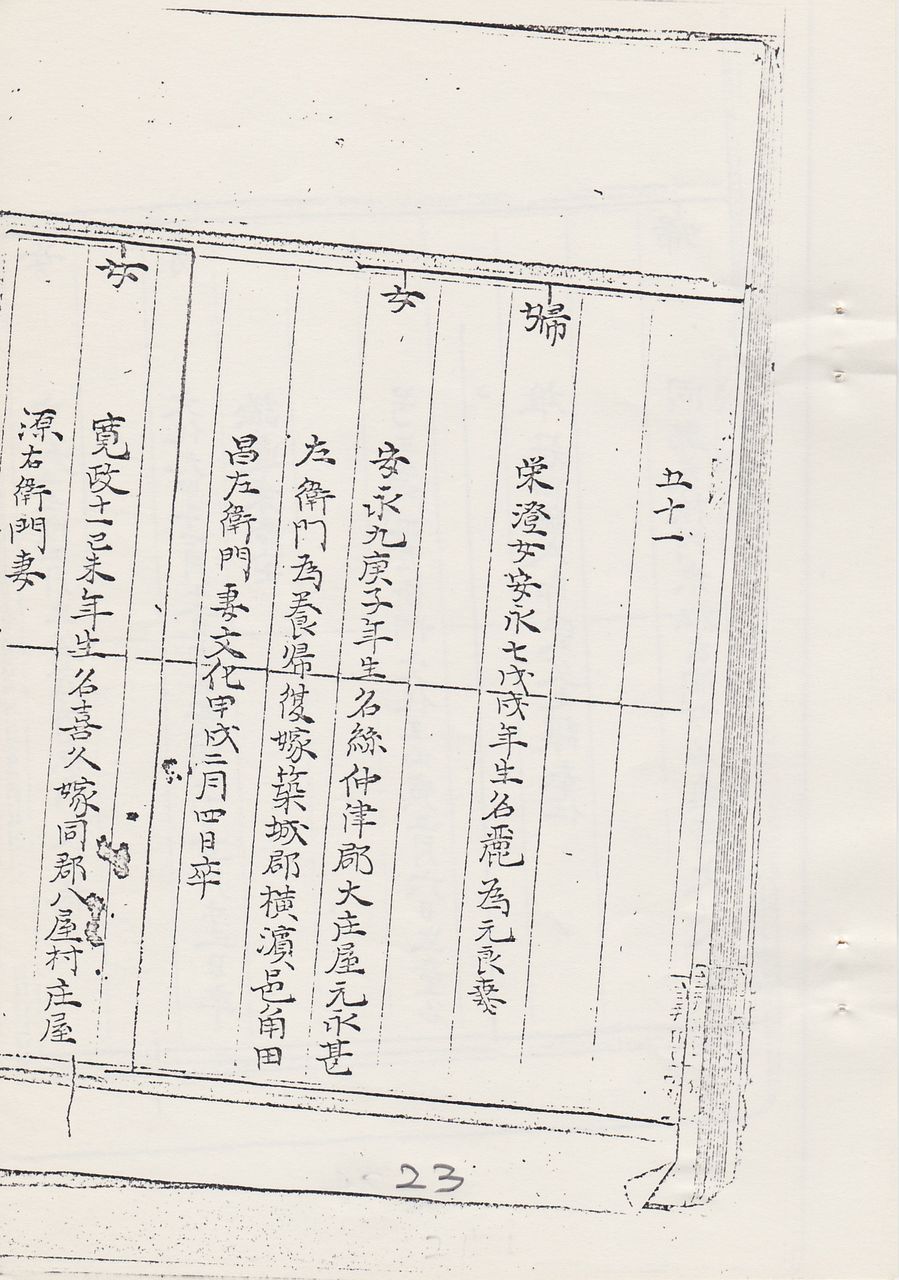 五十一
婦
栄澄女安永七戊戌年生名麗為元良妻
女
安永九庚子年生名絲仲津郡大庄屋元永甚
左衛門為養帰復嫁築城郡横濱邑角田
昌左衛門妻文化甲戌二月四日卒
女
寛政十一己未年生名喜久嫁同郡八屋村庄屋
源右衛門妻
23